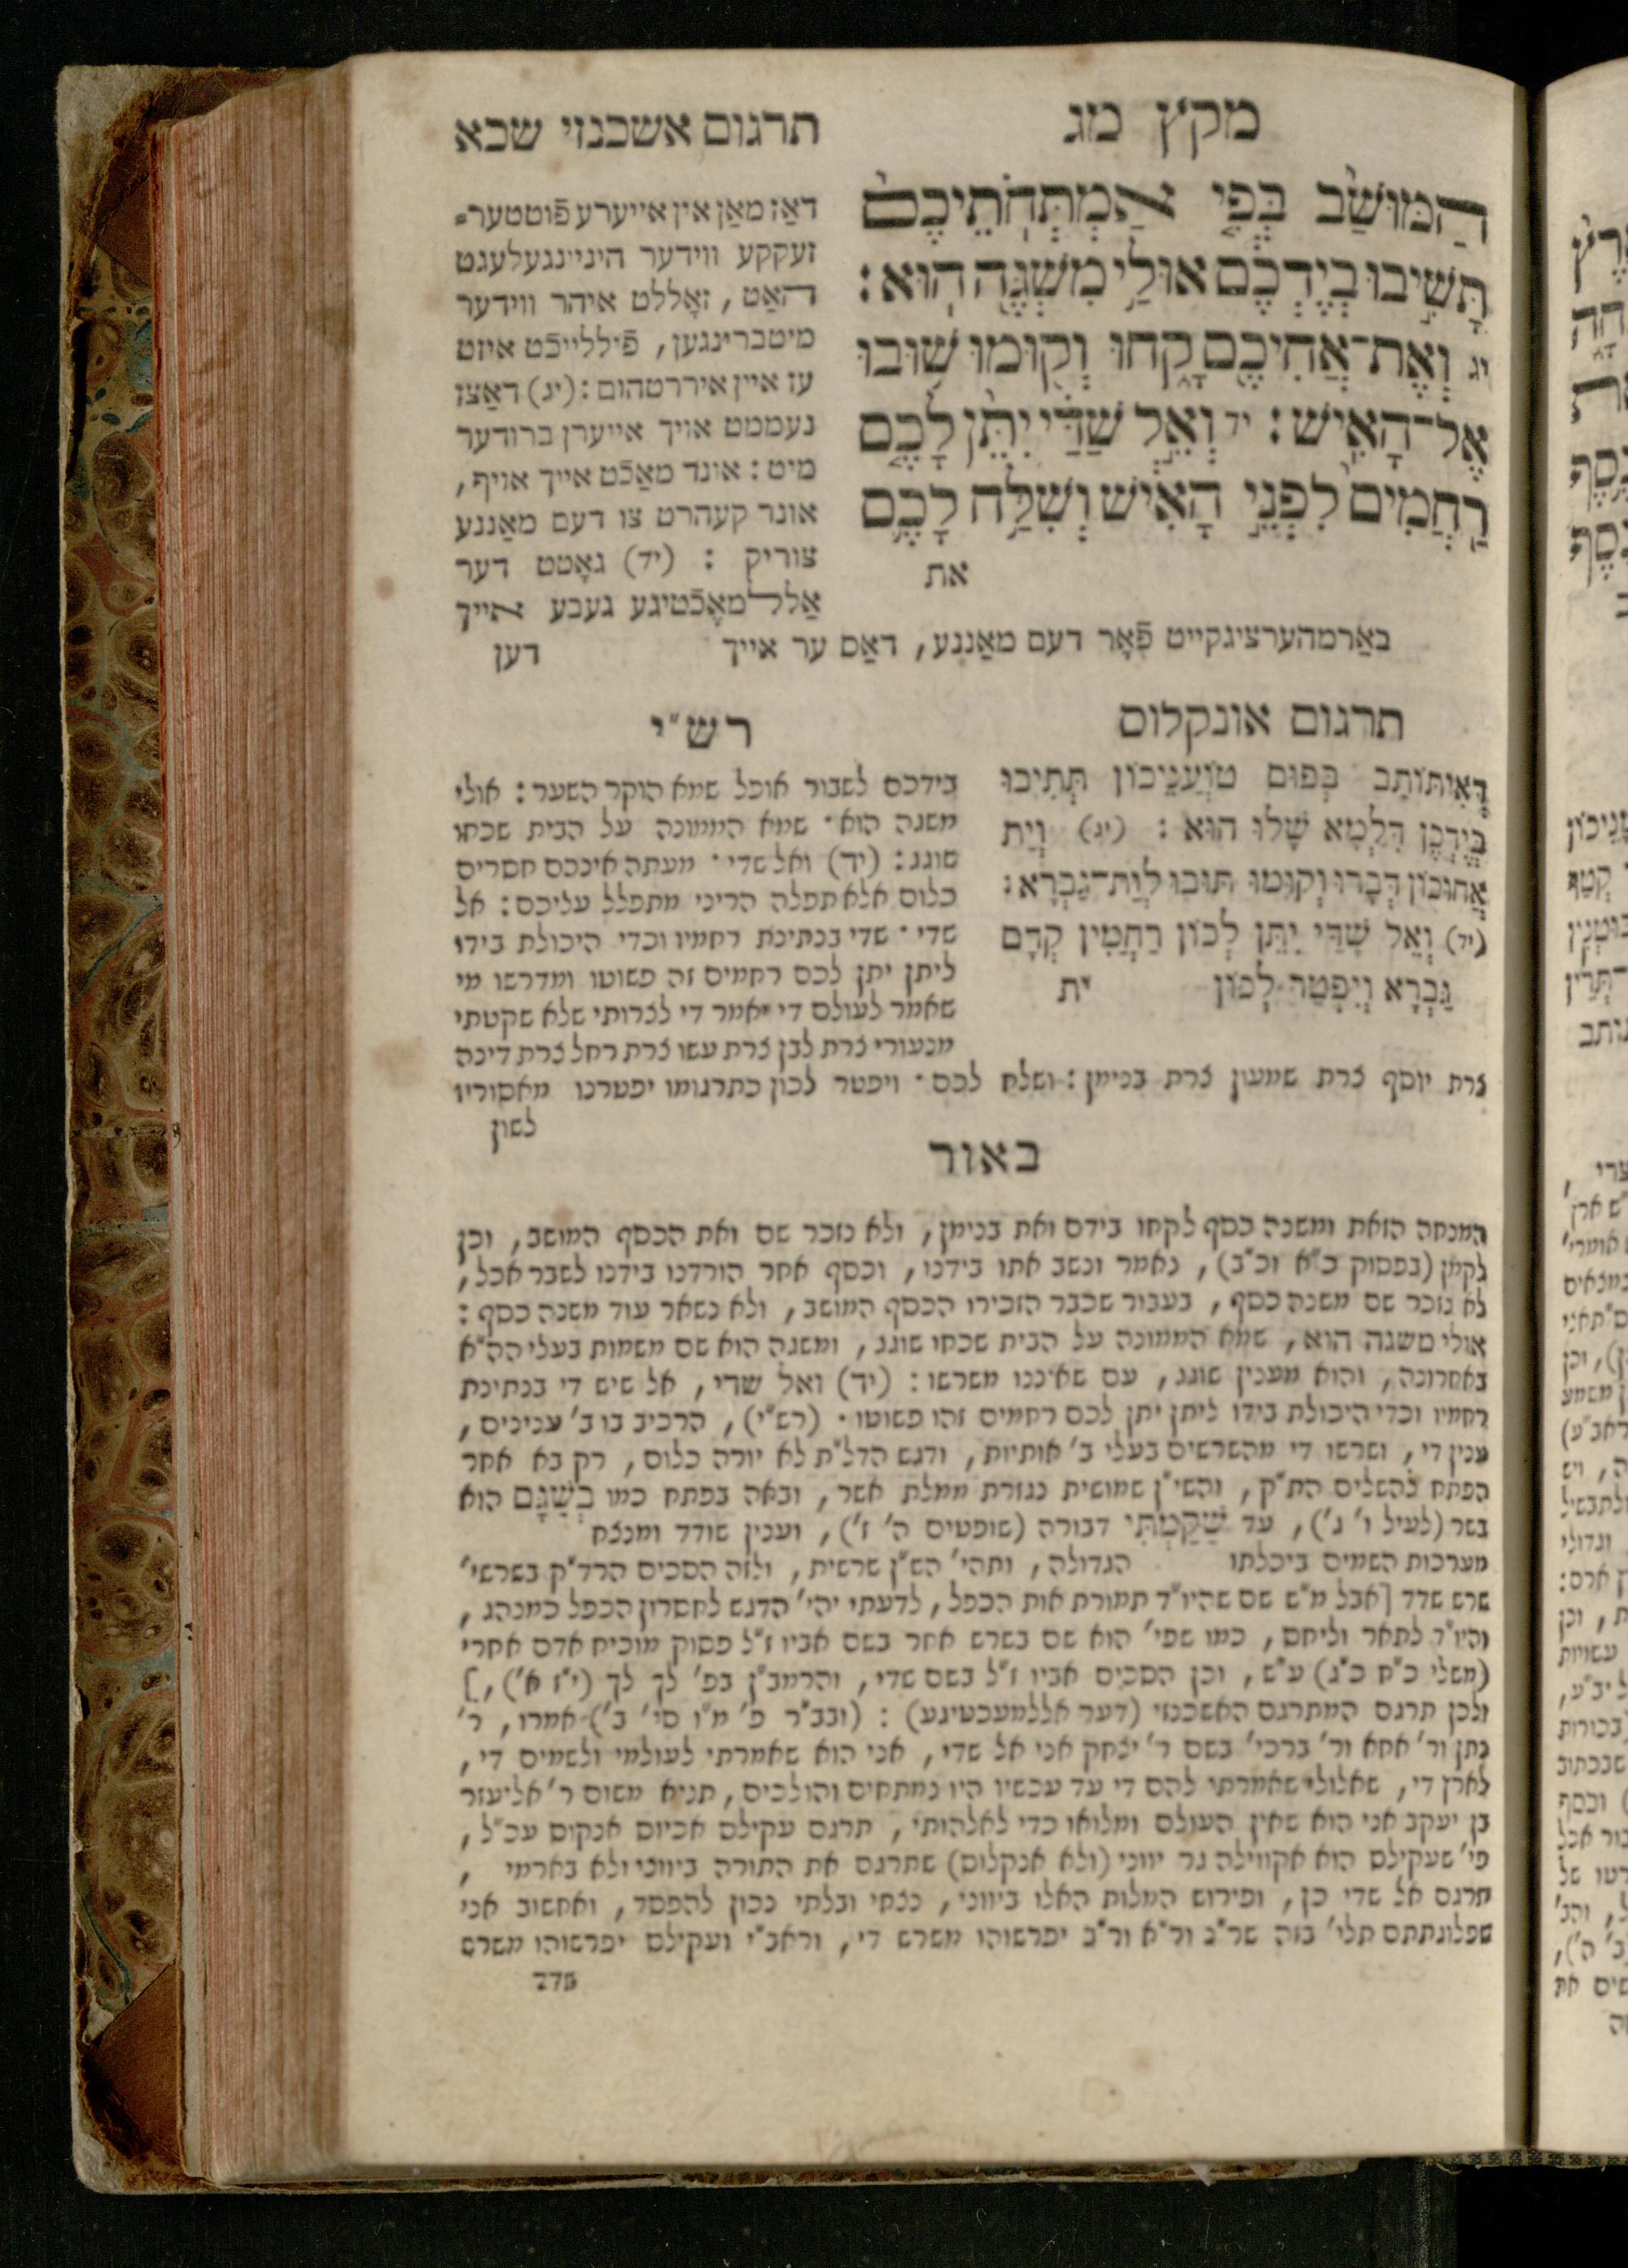 מקץ מג
תרגום אשכנזי שכא
הַמּוּשַׁב בְּפִי אַמְתְּחֹתֵיכֶם
תָּשִׁיבוּ בְיֶדְכֶם אוּלַי מִשְׁגֶּה הוּא׃
יג וְאֶת־אֲחִיכֶם קָחוּ וְקוּמוּ שׁוּבוּ
אֶל־הָאִישׁ׃ יד וְאֵל שַׁדַּי יִתֵּן לָכֶם
רַחֲמִים לִפְנֵי הָאִישׁ וְשִׁלַּח לָכֶם
את
דאַז מאַן אין אייערע פֿוטטער=
זעקקע ווידער היניינגעלעגט
האַט, זאָללט איהר ווידער
מיטברינגען, פֿיללייכֿט איזט
עז איין אירר​טהום: (יג) דאַצו
נעממט אויך אייערן ברודער
מיט: אונד מאַכֿט אייך אויף,
אונד קעהרט צו דעם מאַננע
צוריק : (יד) גאָטט דער
אַללמאֶכֿטיגע געבע אייך
באַרמהערציגקייט פֿאָר דעם מאַננע, דאַס ער אייך דען
תרגום אונקלוס
דְּאִיתּוֹתַב בְּפוּם טוֹעֲנֵיכוֹן תְּתִיבוּ
בְּיֶדְכֶן דִּלְמָא שָׁלוּ הוּא : (יג) וְיַת
אֲחוּכוֹן דְּבָרוּ וְקוּמוּ תּוּבוּ לְוַת־גַּבְרָא:
(יד) וְאֵל שַׁדַּי יִתֵּן לְכוֹן רַחֲמִין קֳדָם
גַּבְרָא וְיִפְטַר לְכוֹן ית
רש"י
בידכם לשבור אוכל שמא הוקר השער: אולי
משגה הוא· שמא הממונה על הבית שכחו
שוגג: (יד) ואל שדי· מעתה אינכם חסרים
כלום אלא תפלה הריני מתפלל עליכם: אל
שדי· שדי בנתינת רחמיו וכדי היכולת בידו
ליתן יתן לכם רחמים זה פשוטו ומדרשו מי
שאמר לעולם די יאמר די לצרותי שלא שקטתי
מנעורי צרת לבן צרת עשו צרת רחל צרת דינה
צרת יוסף צרת שמעון צרת בנימן: ושלח לכם· ויפטר לכון כתרגומו יפטרנו מאסוריו
לשון
באור
המנחה הזאת ומשנה כסף לקחו בידם ואת בנימן, ולא נזכר שם ואת הכסף המושב, וכן
לקמן (בפסוק כ"א וכ"ב), נאמר ונשב אתו בידנו, וכסף אחר הורדנו בידנו לשבר אכל,
לא נזכר שם משנה כסף, בעבור שכבר הזכירו הכסף המושב, ולא נשאר עוד משנה כסף:
אולי משגה הוא, שמא הממונה על הבית שכחו שוגג, ומשגה הוא שם משמות בעלי הה"א
באחרונה, והוא מענין שוגג, עם שאיננו משרשו: (יד) ואל שדי, אל שיש די בנתינת
רחמיו וכדי היכולת בידו ליתן יתן לכם רחמים זהו פשוטו· (רש"י), הרכיב בו ב' ענינים,
ענין די, ושרשו די מהשרשים בעלי ב' אותיות, ודגש הדל"ת לא יורה כלום, רק בא אחר
הפתח להשלים הת"ק, והשי"ן שמושית נגזרת ממלת אשר, ובאה בפתח כמו בְּשַׁגָּם הוא
בשר (לעיל ו' ג'), עד שַׁקַּמְתִּי דבורה (שופטים ה' ז'), וענין שודד ומנצח
מערכות השמים ביכלתו הגדולה, ותהי' הש"ן שרשית, ולזה הסכים הרד"ק בשרשי'
שרש שדד [אבל מ"ש שם שהיו"ד תמורת אות הכפל, לדעתי יהי' הדגש לחסרון הכפל כמנהג,
והיו"ד לתאר וליחס, כמו שפי' הוא שם בשרש אחר בשם אביו ז"ל פסוק מוכיח אדם אחרי
(משלי כ"ח כ"ג) ע"ש, וכן הסכים אביו ז"ל בשם שדי, והרמב"ן בפ' לך לך (י"ז א'),]
ולכן תרגם המתרגם האשכנזי (דער אללמעכטיגע) : (ובב"ר פ' מ"ו סי' ב') אמרו, ר'
נתן ור' אחא ור' ברכי' בשם ר' יצחק אני אל שדי, אני הוא שאמרתי לעולמי ולשמים די,
לארץ די, שאלולי שאמרתי להם די עד עכשיו היו נמתחים והולכים, תניא משום ר' אליעזר
בן יעקב אני הוא שאין העולם ומלואו כדי לאלהותי, תרגם עקילס אכיוס אנקוס עכ"ל,
פי' שעקילס הוא אקווילה גר יווני (ולא אנקלוס) שתרגם את התורה ביווני ולא בארמי ,
תרגם אל שדי כן, ופירוש המלות האלו ביווני, נצחי ובלתי נכון להפסד, ואחשוב אני
שפלוגתתם תלוי' בזה שר"נ ור"א ור"ב יפרשוהו משרש די, וראב"י ועקילס יפרשוהו משרש